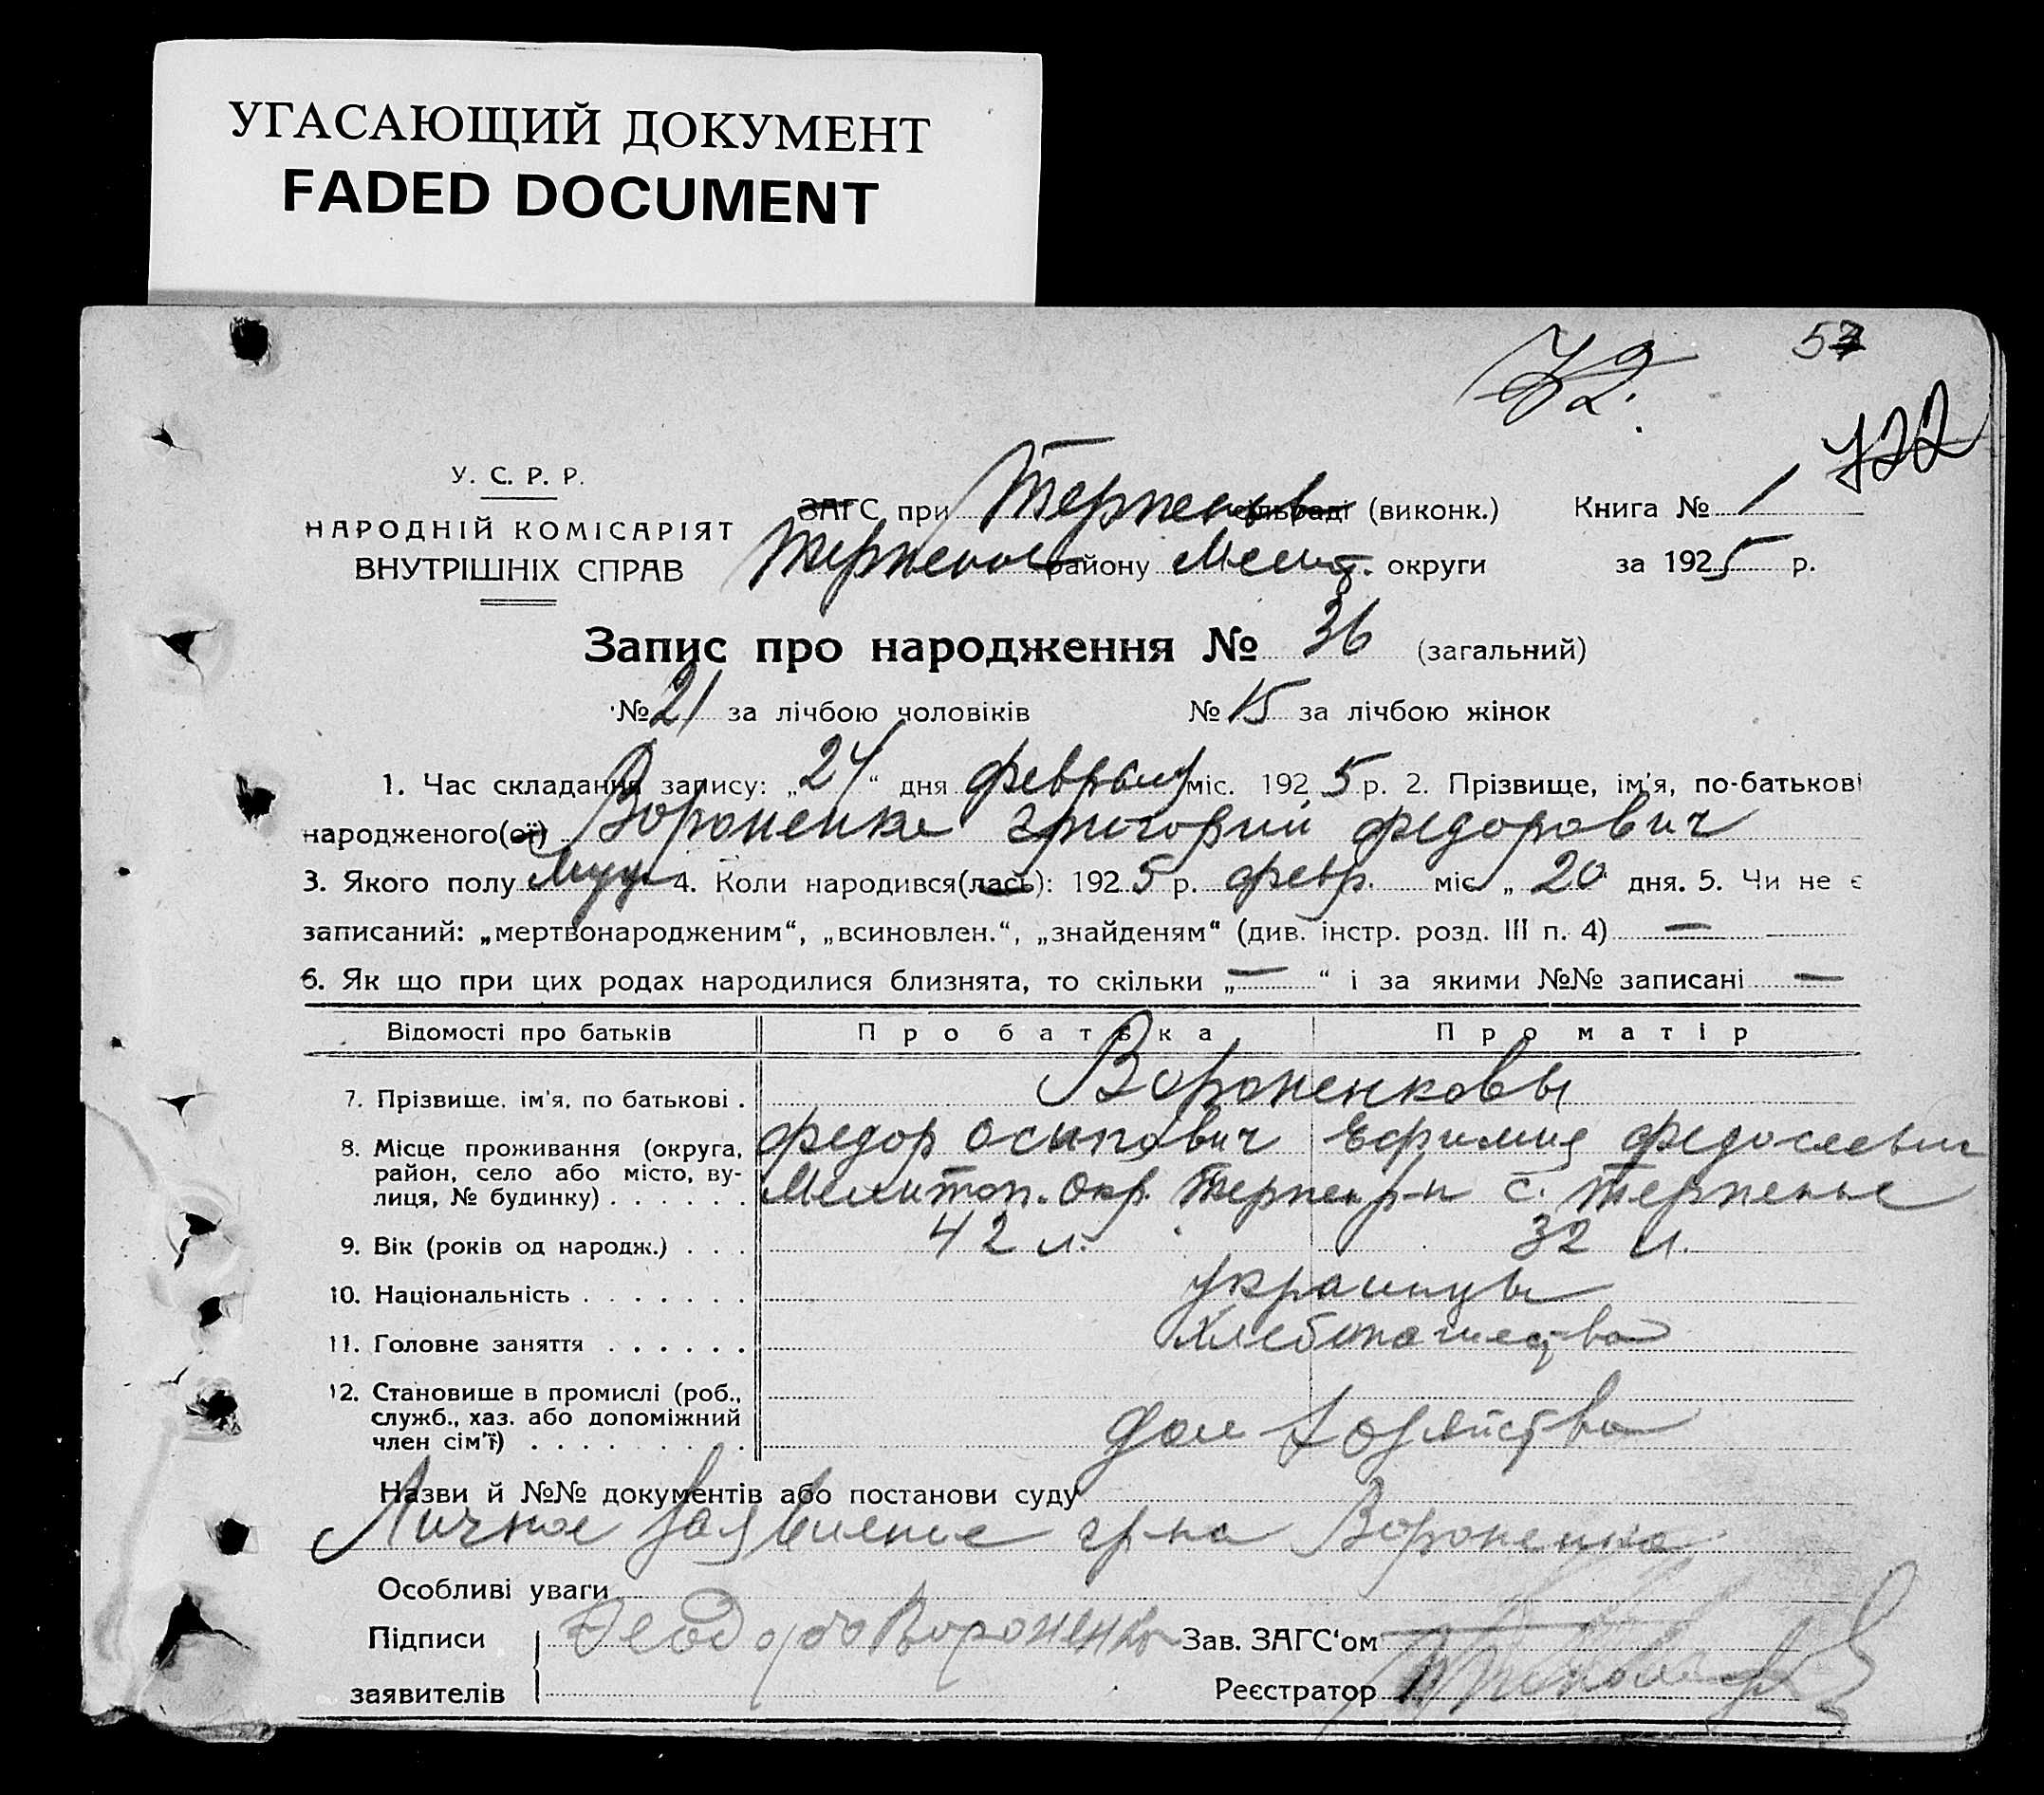 УГАСАЮЩИЙ ДОКУМЕНТ
FADED DOCUMENT
72.
57
122
У. С. Р. Р.
НАРОДНІЙ КОМІСАРІЯТ
ВНУТРІШНІХ СПРАВ
ЗАГС при Терпен сільраді (виконк.) Книга № 1
Терпеньев району Мелит. округи за 1925 р.
Запис про народження № 36 (загальний)
№ 21 за лічбою чоловіків № 15 за лічбою жінок
1. Час складання запису: „24“ дня февраля міс. 1925 р. 2. Прізвище, ім'я, по-батькові
народженого(ої) Вороненко Григорий Федорович
3. Якого полу Муж 4. Коли народився(лась): 1925 р. февр. міс. „20“ дня. 5. Чи не є
записаний: „мертвонародженим“, „всиновлен.“, „знайденям“ (див. інстр. розд. III п. 4) —
6. Як що при цих родах народилися близнята, то скільки „—“ і за якими №№ записані —
Відомості про батьків Про батька Про матір
7. Прізвище, ім'я, по батькові . Вороненковы
8. Місце проживання (округа, район, село або місто, вулиця, № будинку) . . . . . .
Федор Осипович Ефимия
Мелитоп. Окр. Терпен р-н с. Терпенье
9. Вік (років од народж.) . . . 42 л. 32 л.
10. Національність . . . . . . . украинцы
11. Головне заняття . . . . . . Хлебопашество
12. Становище в промислі (роб.,
служб., хаз. або допоміжний
член сім'ї) . . . . . . . . . дом хозяйство
Назви й №№ документів або постанови суду
Личное заявление гр-на Вороненка
Особливі уваги
Підписи Вороненко Зав. ЗАГС'ом
заявителів Реєстратор